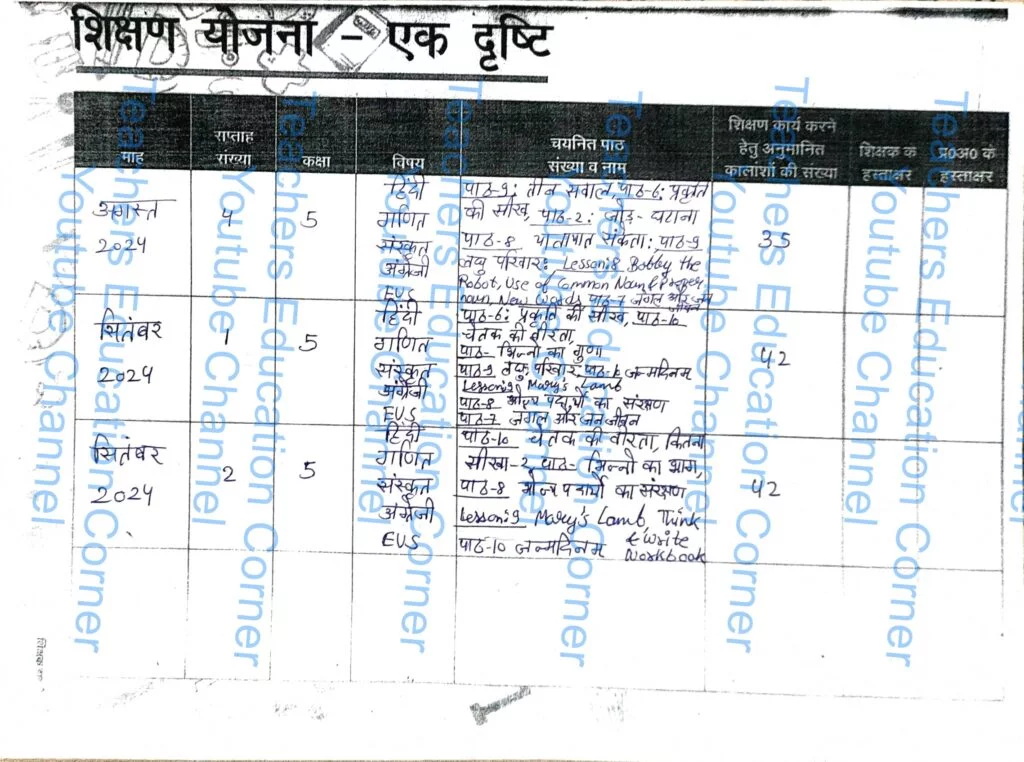 शिक्षण योजना – एक दृष्टि
माह
सप्ताह
संख्या
कक्षा
विषय
चयनित पाठ
संख्या व नाम
शिक्षण कार्य करने
हेतु अनुमानित
कालांशों की संख्या
शिक्षक के
हस्ताक्षर
प्र०अ० के
हस्ताक्षर
अगस्त
2024
4
5
हिंदी
गणित
संस्कृत
अंग्रेजी
EVS
पाठ-9: तीन सवाल, पाठ-6: प्रकृति
की सीख, पाठ-2: जोड़-घटाना
पाठ-8 यातायात संकेता: पाठ-9
लघु परिवार: Lesson:8 Bobby the
Robot, Use of Common Noun & Proper
noun, New Words पाठ-7 जंगल और जन
जीवन
35
सितंबर
2024
1
5
हिंदी
गणित
संस्कृत
अंग्रेजी
EVS
पाठ-6: प्रकृति की सीख, पाठ-10
चेतक की वीरता,
पाठ- भिन्नो का गुणा
पाठ-9 लघु परिवार, पाठ-10 जन्मदिनम
Lesson:9 Mary's Lamb
पाठ-8 भोज्य पदार्थो का संरक्षण
पाठ-7 जंगल और जनजीवन
42
सितंबर
2024
2
5
हिंदी
गणित
संस्कृत
अंग्रेजी
EVS
पाठ-10 चेतक की वीरता, कितना
सीखा-2, पाठ- भिन्नो का भाग,
पाठ-8 भोज्य पदार्थो का संरक्षण
Lesson:9 Mary's Lamb, Think
& Write
Workbook
पाठ-10 जन्मदिनम
42
Teachers Education Corner
Youtube Channel
Teachers Education Corner
Youtube Channel
Teachers Education Corner
Youtube Channel
Teachers Education Corner
Youtube Channel
Teachers Education Corner
Youtube Channel
Teachers Education Corner
Youtube Channel